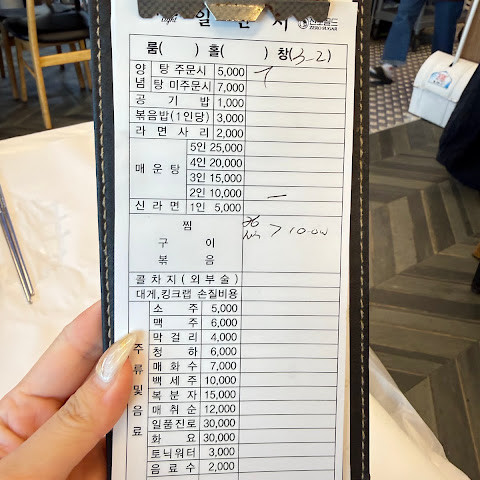 일 시
ZERO SUGAR
룸( ) 홀( ) 창(3-2)
양념 탕 주문시 5,000
탕 미주문시 7,000
공기밥 1,000
볶음밥(1인당) 3,000
라면사리 2,000
매운탕 5인 25,000
4인 20,000
3인 15,000
2인 10,000 —
신라면 1인 5,000
찜
구이 > 10.000
볶음
콜차지(외부술)
대게,킹크랩 손질비용
주류및음료
소주 5,000
맥주 6,000
막걸리 4,000
청하 6,000
매화수 7,000
백세주 10,000
복분자 15,000
매취순 12,000
일품진로 30,000
화요 30,000
토닉워터 3,000
음료수 2,000